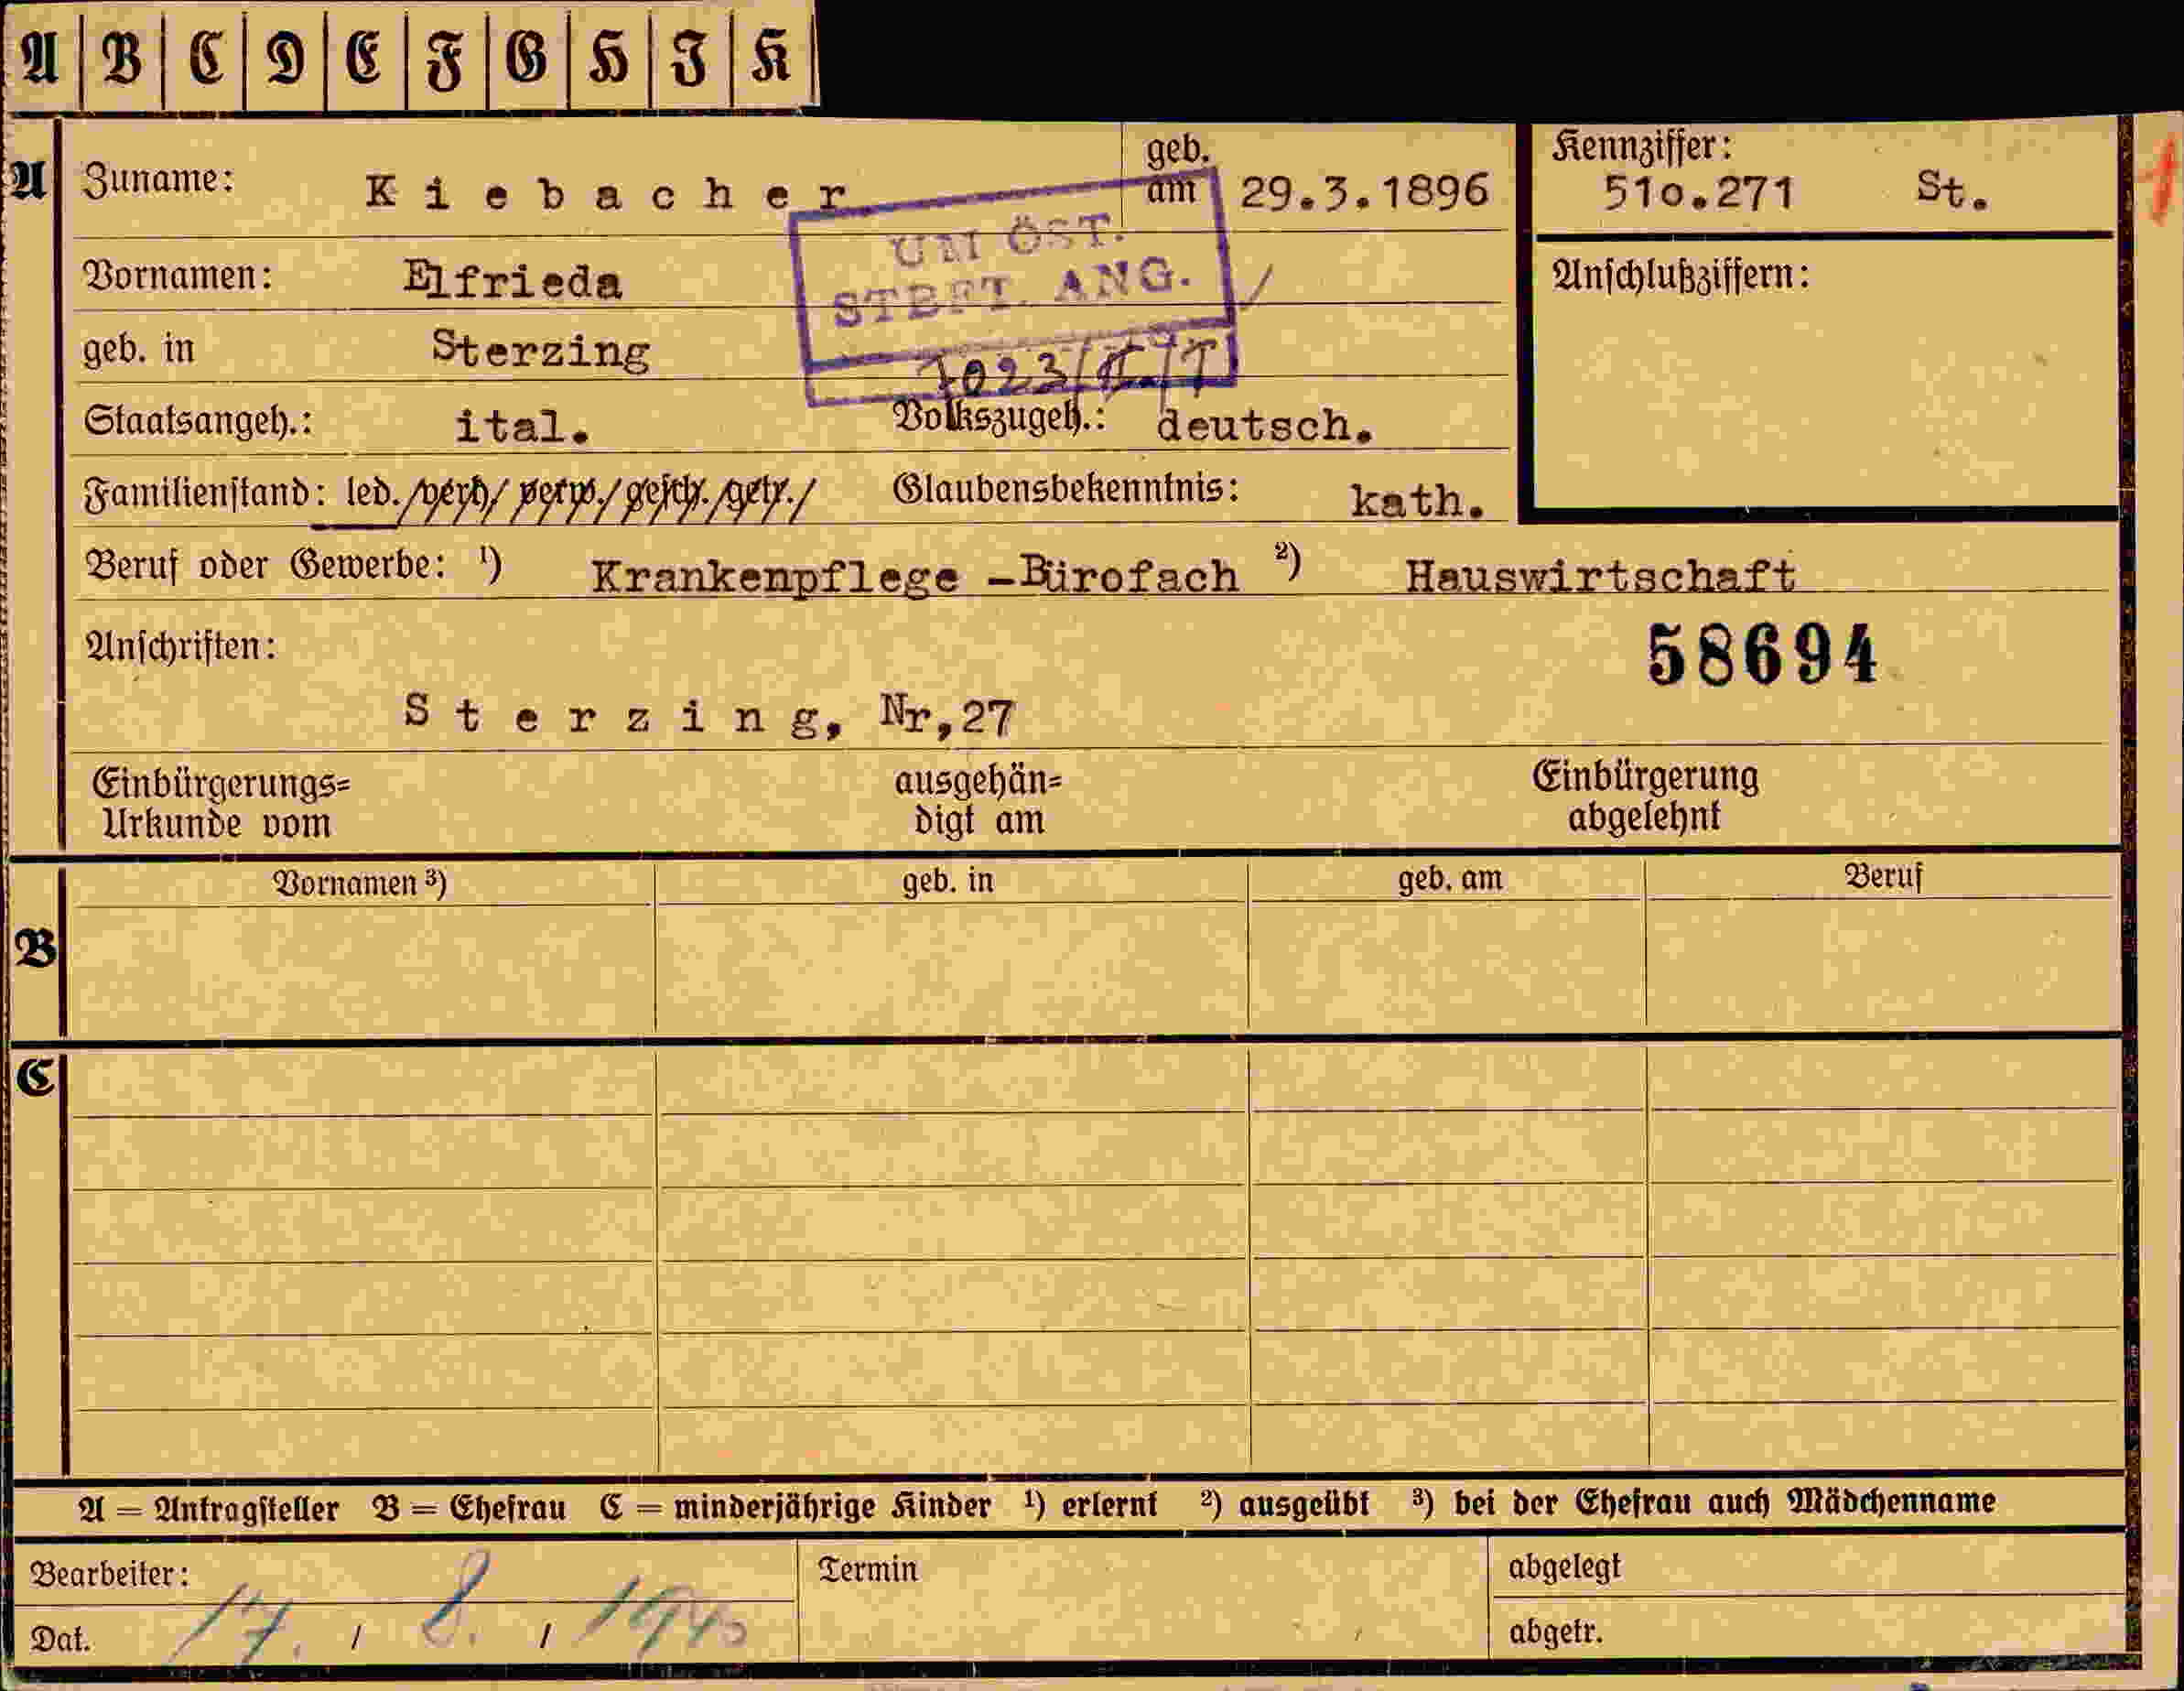 A B C D E F G H J K
A Zuname: Kiebacher geb. am 29.3.1896 Kennziffer: 51o.271 St. 1
UM ÖST. STBFT. ANG.
Vornamen: Elfrieda Anschlußziffern:
geb. in Sterzing 1023/II./T
Staatsangeh.: ital. Volkszugeh.: deutsch.
Familienstand: led./verh/ verw./gesch./getr./ Glaubensbekenntnis: kath.
Beruf oder Gewerbe: ¹) Krankenpflege -Bürofach ²) Hauswirtschaft
Anschriften: 58694
Sterzing, Nr,27
Einbürgerungs= ausgehän= Einbürgerung
Urkunde vom digt am abgelehnt
Vornamen ³) geb. in geb. am Beruf
B
C
A = Antragsteller B = Ehefrau C = minderjährige Kinder ¹) erlernt ²) ausgeübt ³) bei der Ehefrau auch Mädchenname
Bearbeiter: Termin abgelegt
Dat. 17. / 8. / 1940 abgetr.